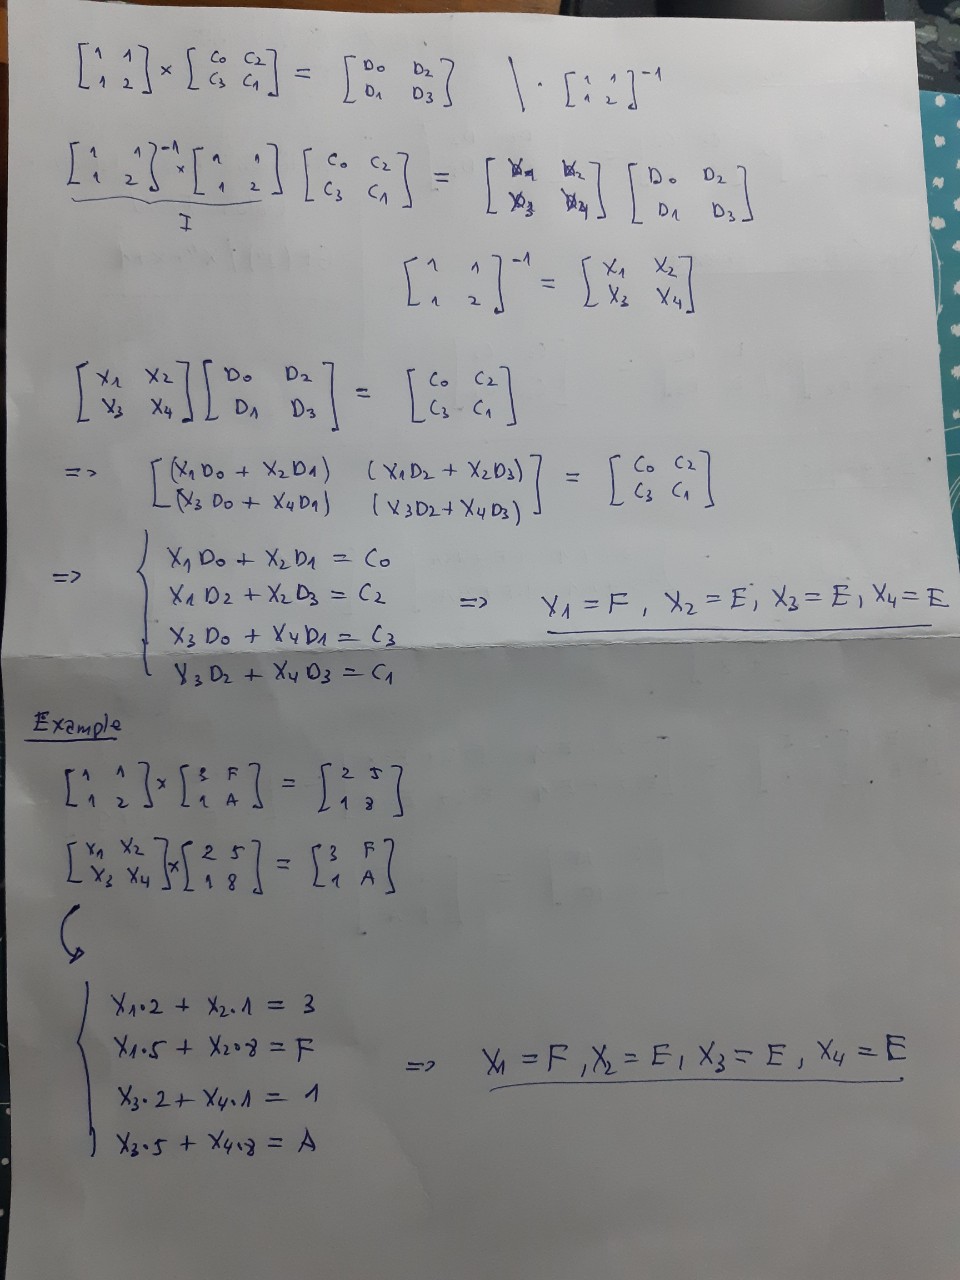 [1 1 / 1 2] × [C0 C2 / C3 C1] = [D0 D2 / D1 D3] \ · [1 1 / 1 2]^-1
[1 1 / 1 2]^-1 × [1 1 / 1 2] [C0 C2 / C3 C1] = [X1 X2 / X3 X4] [D0 D2 / D1 D3]
I
[1 1 / 1 2]^-1 = [X1 X2 / X3 X4]
[X1 X2 / X3 X4] [D0 D2 / D1 D3] = [C0 C2 / C3 C1]
=> [(X1D0 + X2D1) (X1D2 + X2D3) / (X3D0 + X4D1) (X3D2 + X4D3)] = [C0 C2 / C3 C1]
X1D0 + X2D1 = C0
=> X1D2 + X2D3 = C2 => X1 = F, X2 = E, X3 = E, X4 = E
X3D0 + X4D1 = C3
X3D2 + X4D3 = C1
Example
[1 1 / 1 2] × [3 F / 1 A] = [2 5 / 1 8]
[X1 X2 / X3 X4] × [2 5 / 1 8] = [3 F / 1 A]
X1·2 + X2·1 = 3
X1·5 + X2·8 = F => X1 = F, X2 = E, X3 = E, X4 = E
X3·2 + X4·1 = 1
X3·5 + X4·8 = A